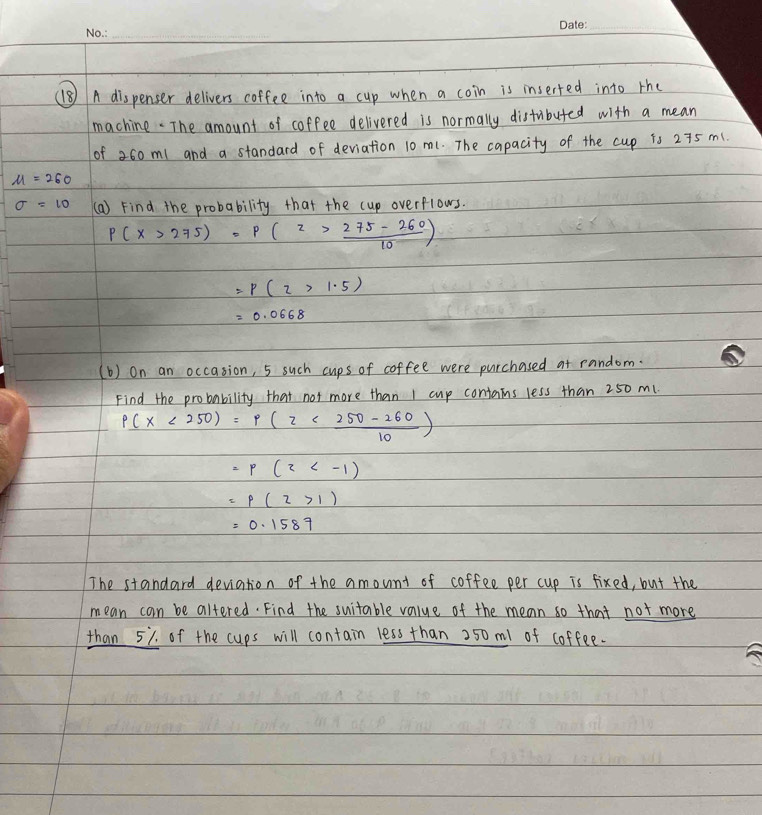 No.:
Date:
(18) A dispenser delivers coffee into a cup when a coin is inserted into the
machine. The amount of coffee delivered is normally distributed with a mean
of 260 ml and a standard of deviation 10 ml. The capacity of the cup is 275 ml.
μ = 260
σ = 10
(a) Find the probability that the cup overflows.
P(X > 275) = P( z > (275 - 260)/10 )
= P( z > 1.5)
= 0.0668
(b) On an occasion, 5 such cups of coffee were purchased at random.
Find the probability that not more than 1 cup contains less than 250 ml.
P(X < 250) = P( z < (250 - 260)/10 )
= P (z < -1)
= P( z > 1)
= 0.1587
The standard deviation of the amount of coffee per cup is fixed, but the
mean can be altered. Find the suitable value of the mean so that not more
than 5% of the cups will contain less than 250 ml of coffee.